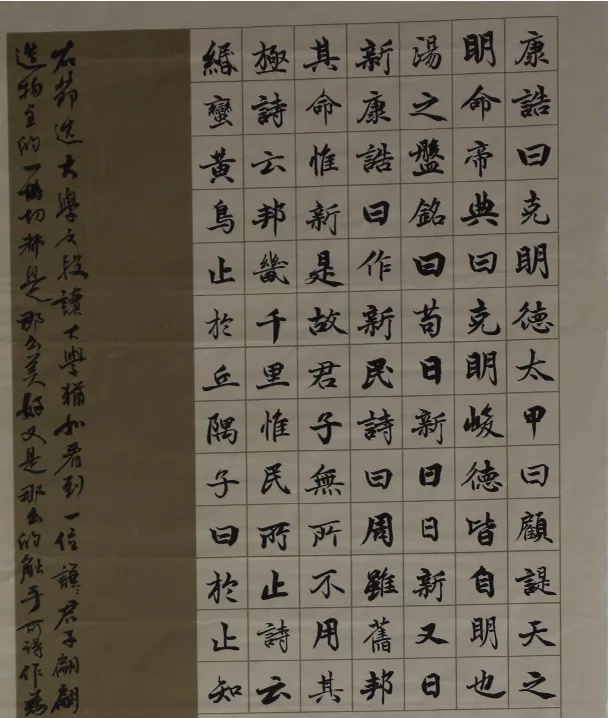 康誥曰克明德太甲曰顧諟天之
明命帝典曰克明峻德皆自明也
湯之盤銘曰苟日新日日新又日
新康誥曰作新民詩曰周雖舊邦
其命惟新是故君子無所不用其
極詩云邦畿千里惟民所止詩云
緡蠻黃鳥止於丘隅子曰於止知
右節選大學文段讀大學猶如看到一位謙謙君子翩翩
造物主的一切都是那么美好又是那么的触手可得作为